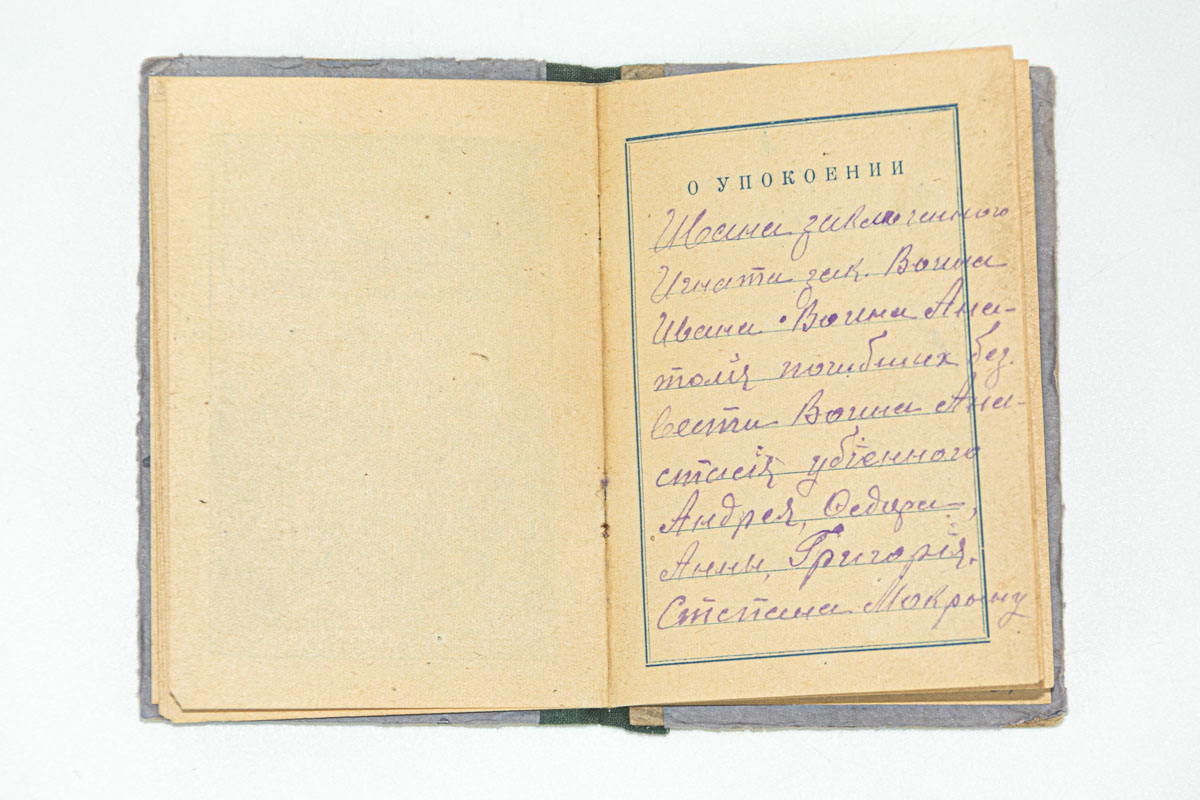 О УПОКОЕНИИ
Ивана заключенного
Игната зак. Воина
Ивана Воина Ана-
толія погибших без.
вести Воина Ана-
стасія убіенного
Андрея, Федора,
Анны, Григорія.
Степана Мокрыну